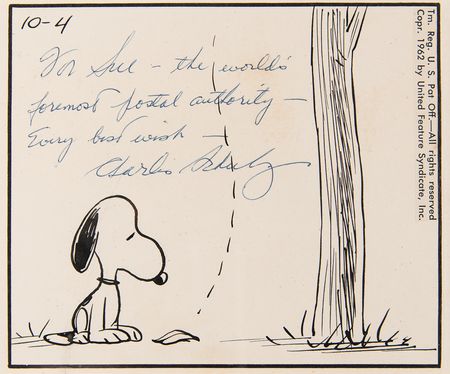 10-4
For Sue - the world's
foremost postal authority -
Every best wish -
Charles Schulz
Tm. Reg. U. S. Pat Off.—All rights reserved
Copr. 1962 by United Feature Syndicate, Inc.